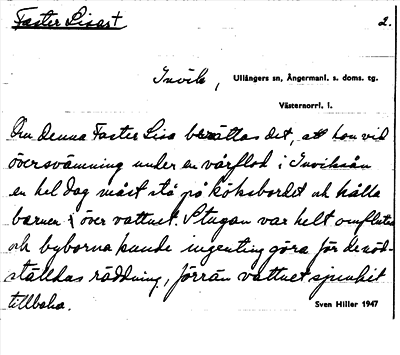 Faster Lisas t 2.
Invik, Ullångers sn, Ångermanl. s. doms. tg.
Västernorrl. l.
Om denna Faster Lisa berättas det, att hon vid
översvämning under en vårflod i Inviksån
en hel dag måst stå på köksbordet och hålla
barnen över vattnet. Stugan var helt omfluten
och byborna kunde ingenting göra för de nöd-
ställdas räddning, förrän vattnet sjunkit
tillbaka.
Sven Hiller 1947